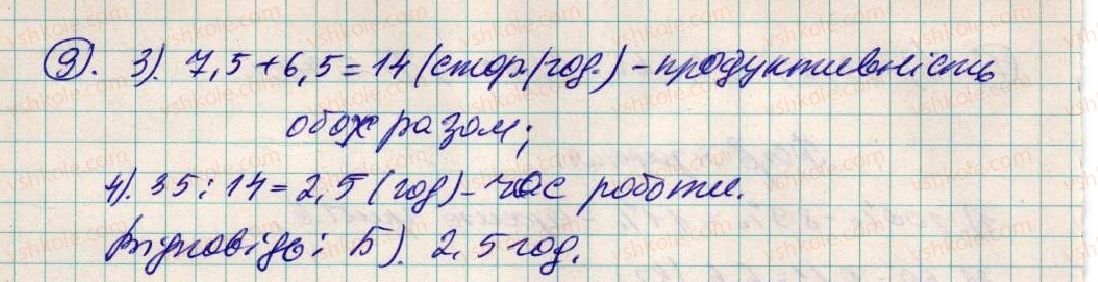 9). 3). 7,5+6,5=14 (стор/год.) – продуктивність
обох разом;
4). 35:14=2,5 (год) – час роботи.
Відповідь: Б). 2,5 год.